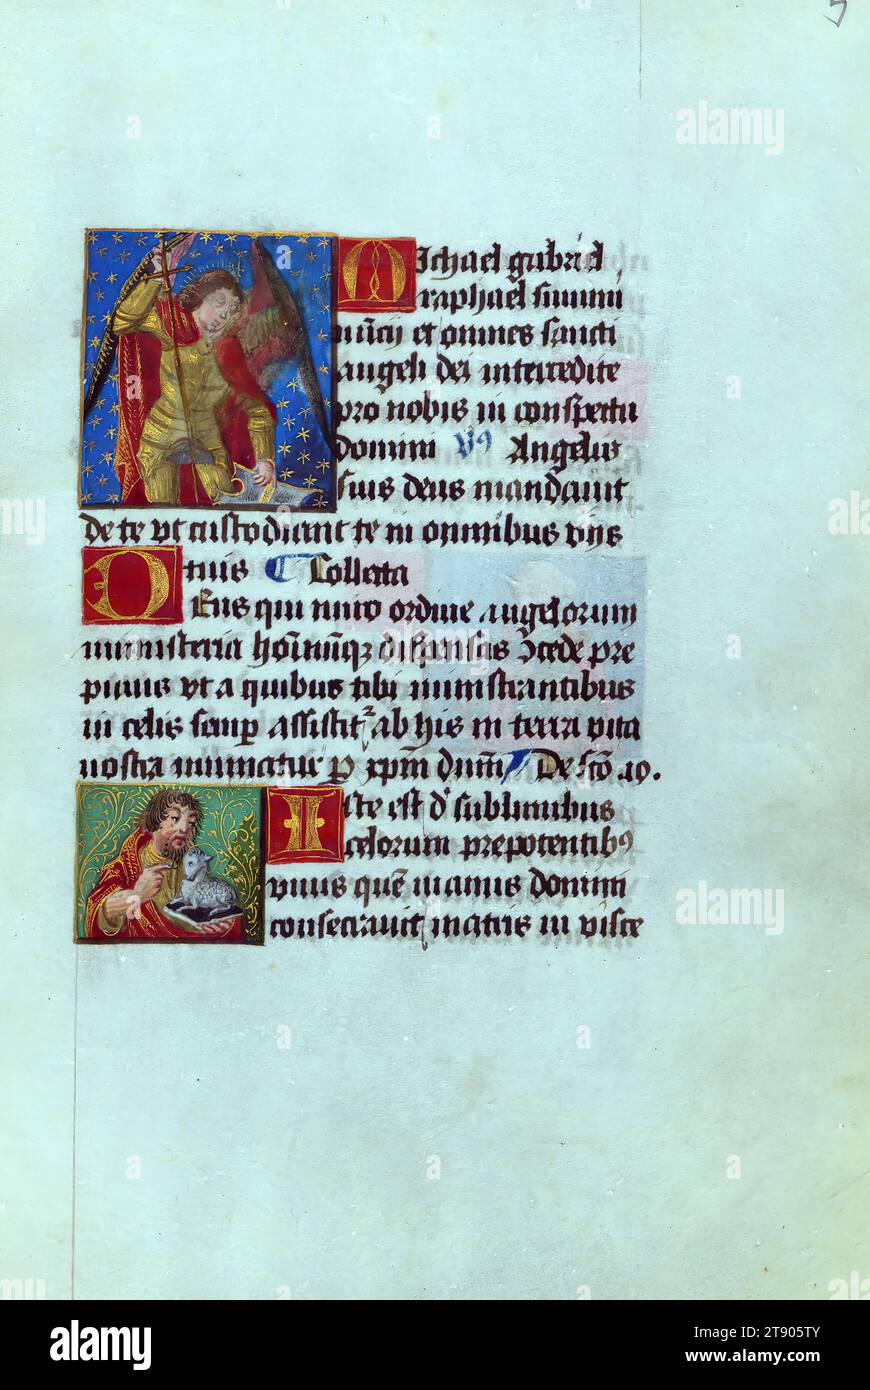 Michael gabriel
raphael summi
nūcij et omnes sancti
angeli dei intercedite
pro nobis in conspectu
domini V⁹ Angelus
suis deus mandauit
de te vt custodiant te in omnibus vijs
tuis Collecta
DEus qui miro ordine angelorum
ministeria hom̄ūq; dispensas ꝯcede pre
pinus vt a quibus tibi ministrantibus
in celis semp assistit² ab his in terra vita
nostra muniatur p xp̄m dn̄m De sc̄o io.
Iste est d' sublimibus
celorum prepotentib⁹
vnus quē manus domini
consecrauit matris in visce
alamy
Image ID: 2T905TY
www.alamy.com